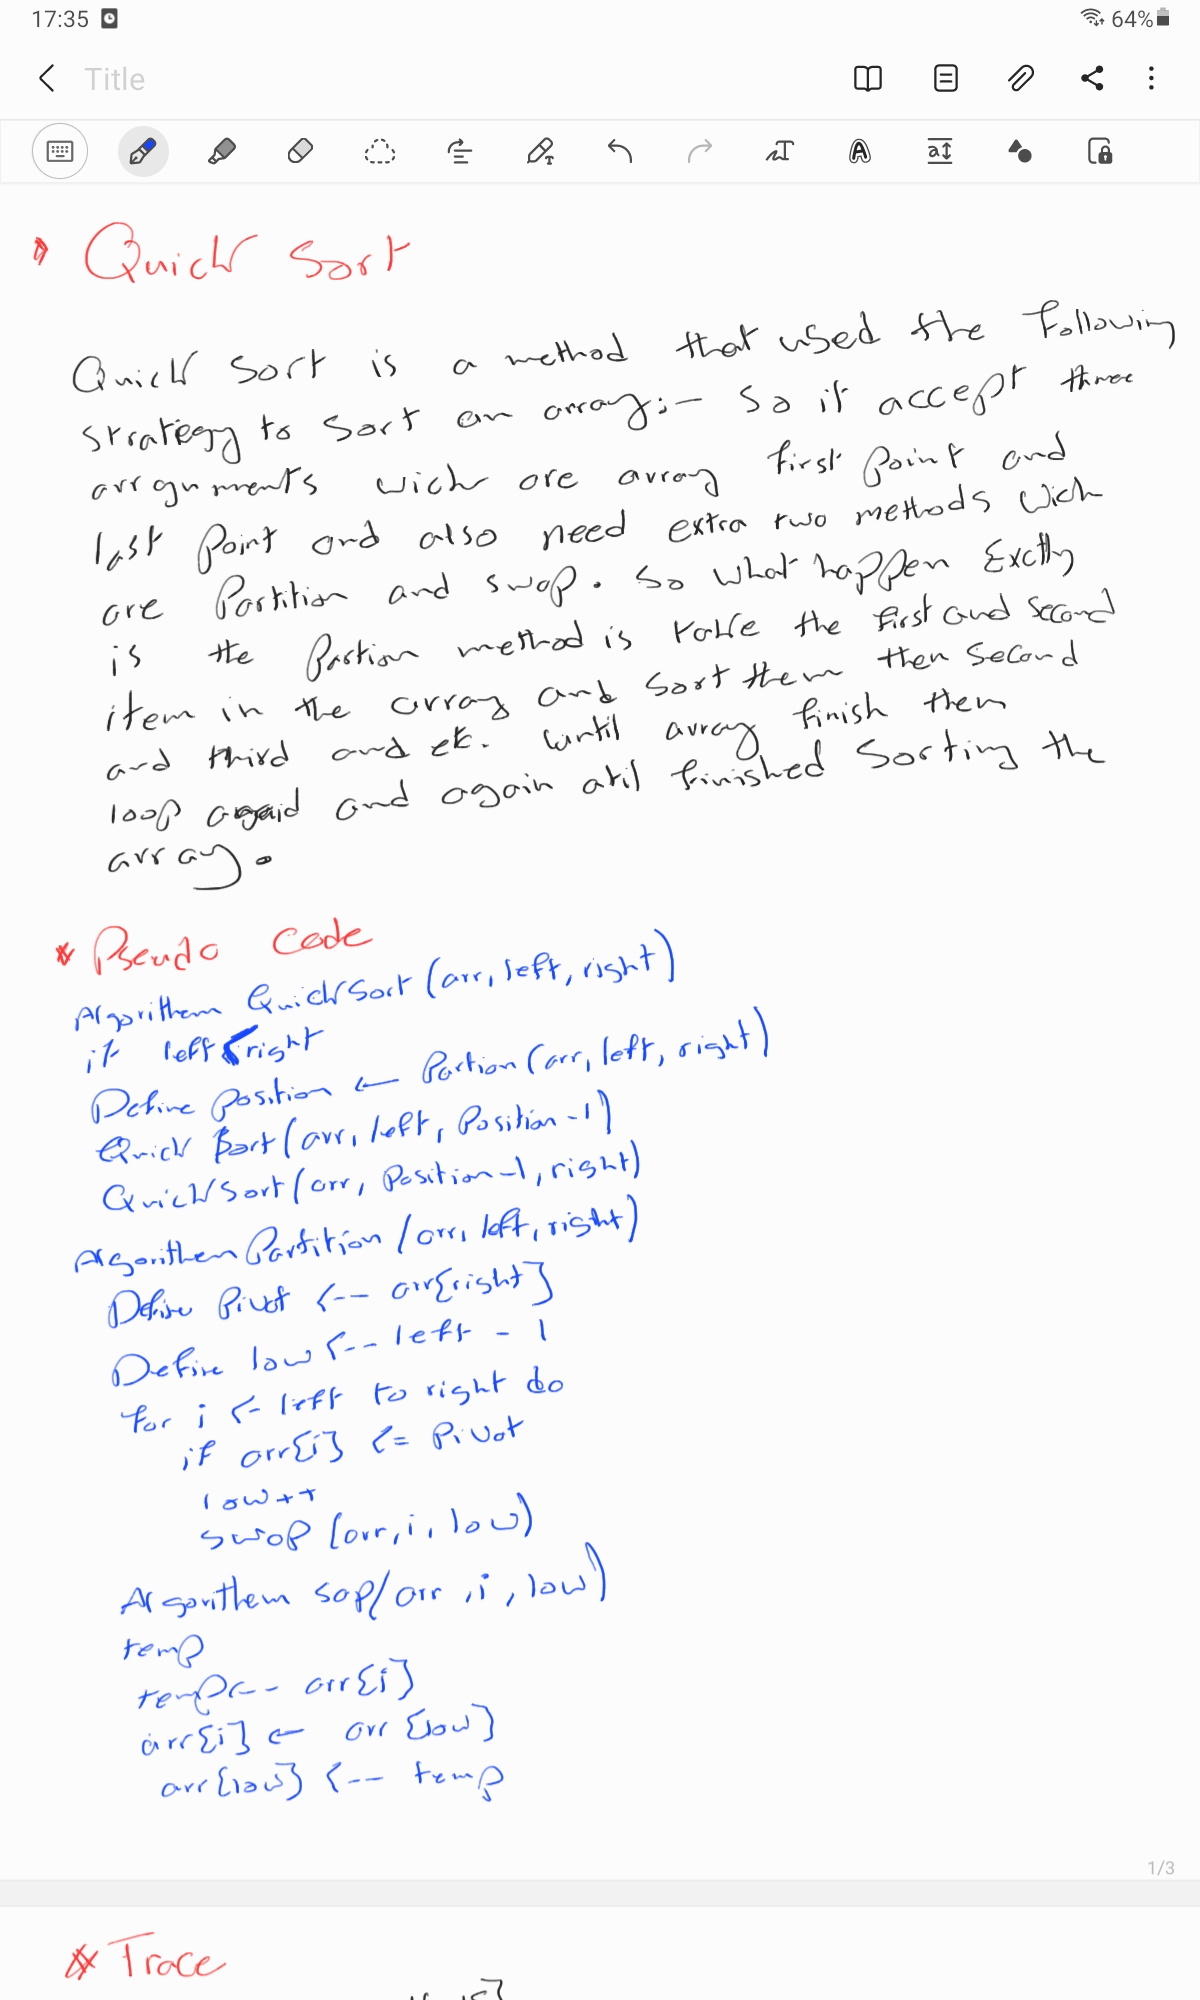 17:35
64%
Title
Quick Sort
Quick Sort is a method that used the following
strategy to Sort an array:- So it accept three
arrguments wich are array first Point and
last Point and also need extra two methods wich
are Partition and swap. So what happen Exctly
is the Partion method is take the first and second
item in the array and Sort them then Second
and third and etc. until array finish then
loop again and again util finished Sorting the
array.
* Pseudo Code
Algorithem QuickSort (arr, left, right)
if left < right
Define position ← Partion (arr, left, right)
Quick Sort (arr, left, Position -1)
QuickSort (arr, Position -1, right)
Algorithem Partition (arr, left, right)
Define Pivot <-- arr[right]
Define low <-- left - 1
for i <- left to right do
if arr[i] <= Pivot
low++
swap (arr, i, low)
Algorithem sap (arr, i, low)
temp
temp <-- arr[i]
arr[i] ← arr [low]
arr[low] <-- temp
1/3
* Trace